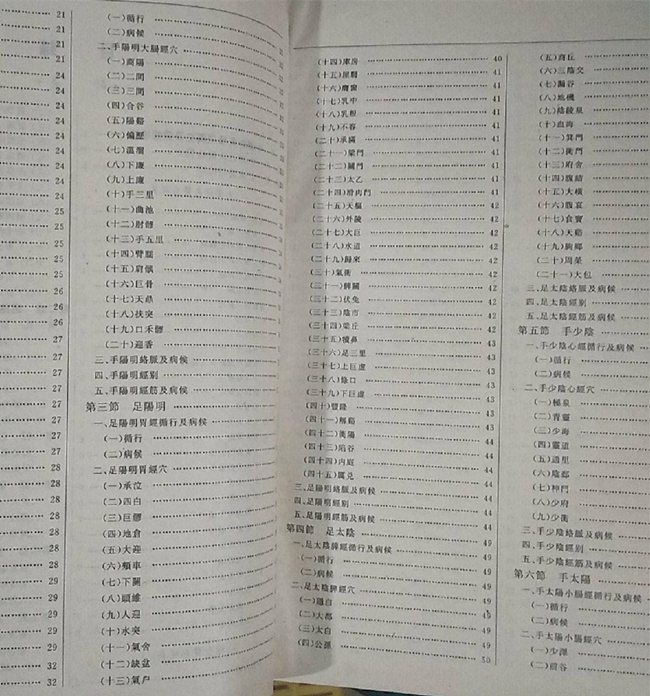 21
21
21
21
24
24
24
24
24
24
24
24
24
25
25
25
25
26
26
27
27
27
27
27
28
28
28
28
28
29
29
32
32
(一)循行
(二)病候
二、手陽明大腸經穴
(一)商陽
(二)二間
(三)三間
(四)合谷
(五)陽谿
(六)偏歷
(七)溫溜
(八)下廉
(九)上廉
(十)手三里
(十一)曲池
(十二)肘髎
(十三)手五里
(十四)臂臑
(十五)肩髃
(十六)巨骨
(十七)天鼎
(十八)扶突
(十九)口禾髎
(二十)迎香
三、手陽明絡脈及病候
四、手陽明經別
五、手陽明經筋及病候
第三節 足陽明
一、足陽明胃經循行及病候
(一)循行
(二)病候
二、足陽明胃經穴
(一)承泣
(二)四白
(三)巨髎
(四)地倉
(五)大迎
(六)頰車
(七)下關
(八)頭維
(九)人迎
(十)水突
(十一)氣舍
(十二)缺盆
(十三)氣户
(十四)庫房 40
(十五)屋翳 41
(十六)膺窗 41
(十七)乳中 41
(十八)乳根 41
(十九)不容 41
(二十)承滿 41
(二十一)梁門 41
(二十二)關門 41
(二十三)太乙 41
(二十四)滑肉門 41
(二十五)天樞 42
(二十六)外陵 42
(二十七)大巨 42
(二十八)水道 42
(二十九)歸來 42
(三十)氣衝 42
(三十一)髀關 42
(三十二)伏兔 42
(三十三)陰市 42
(三十四)梁丘 42
(三十五)犢鼻 42
(三十六)足三里 43
(三十七)上巨虛 43
(三十八)條口 43
(三十九)下巨虛 43
(四十)豐隆 43
(四十一)解谿 43
(四十二)衝陽 44
(四十三)陷谷 44
(四十四)內庭 44
(四十五)厲兌 44
三、足陽明絡脈及病候 44
四、足陽明經別 44
五、足陽明經筋及病候 44
第四節 足太陰 49
一、足太陰脾經循行及病候 49
(一)循行 49
(二)病候 49
二、足太陰脾經穴 49
(一)隱白 49
(二)大都 49
(三)太白 49
(四)公孫 50
(五)商丘
(六)三陰交
(七)漏谷
(八)地機
(九)陰陵泉
(十)血海
(十一)箕門
(十二)衝門
(十三)府舍
(十四)腹結
(十五)大橫
(十六)腹哀
(十七)食竇
(十八)天谿
(十九)胸鄉
(二十)周榮
(二十一)大包
三、足太陰絡脈及病候
四、足太陰經別
五、足太陰經筋及病候
第五節 手少陰
一、手少陰心經循行及病候
(一)循行
(二)病候
二、手少陰心經穴
(一)極泉
(二)青靈
(三)少海
(四)靈道
(五)通里
(六)陰郄
(七)神門
(八)少府
(九)少衝
三、手少陰絡脈及病候
四、手少陰經別
五、手少陰經筋及病候
第六節 手太陽
一、手太陽小腸經循行及病候
(一)循行
(二)病候
二、手太陽小腸經穴
(一)少澤
(二)前谷